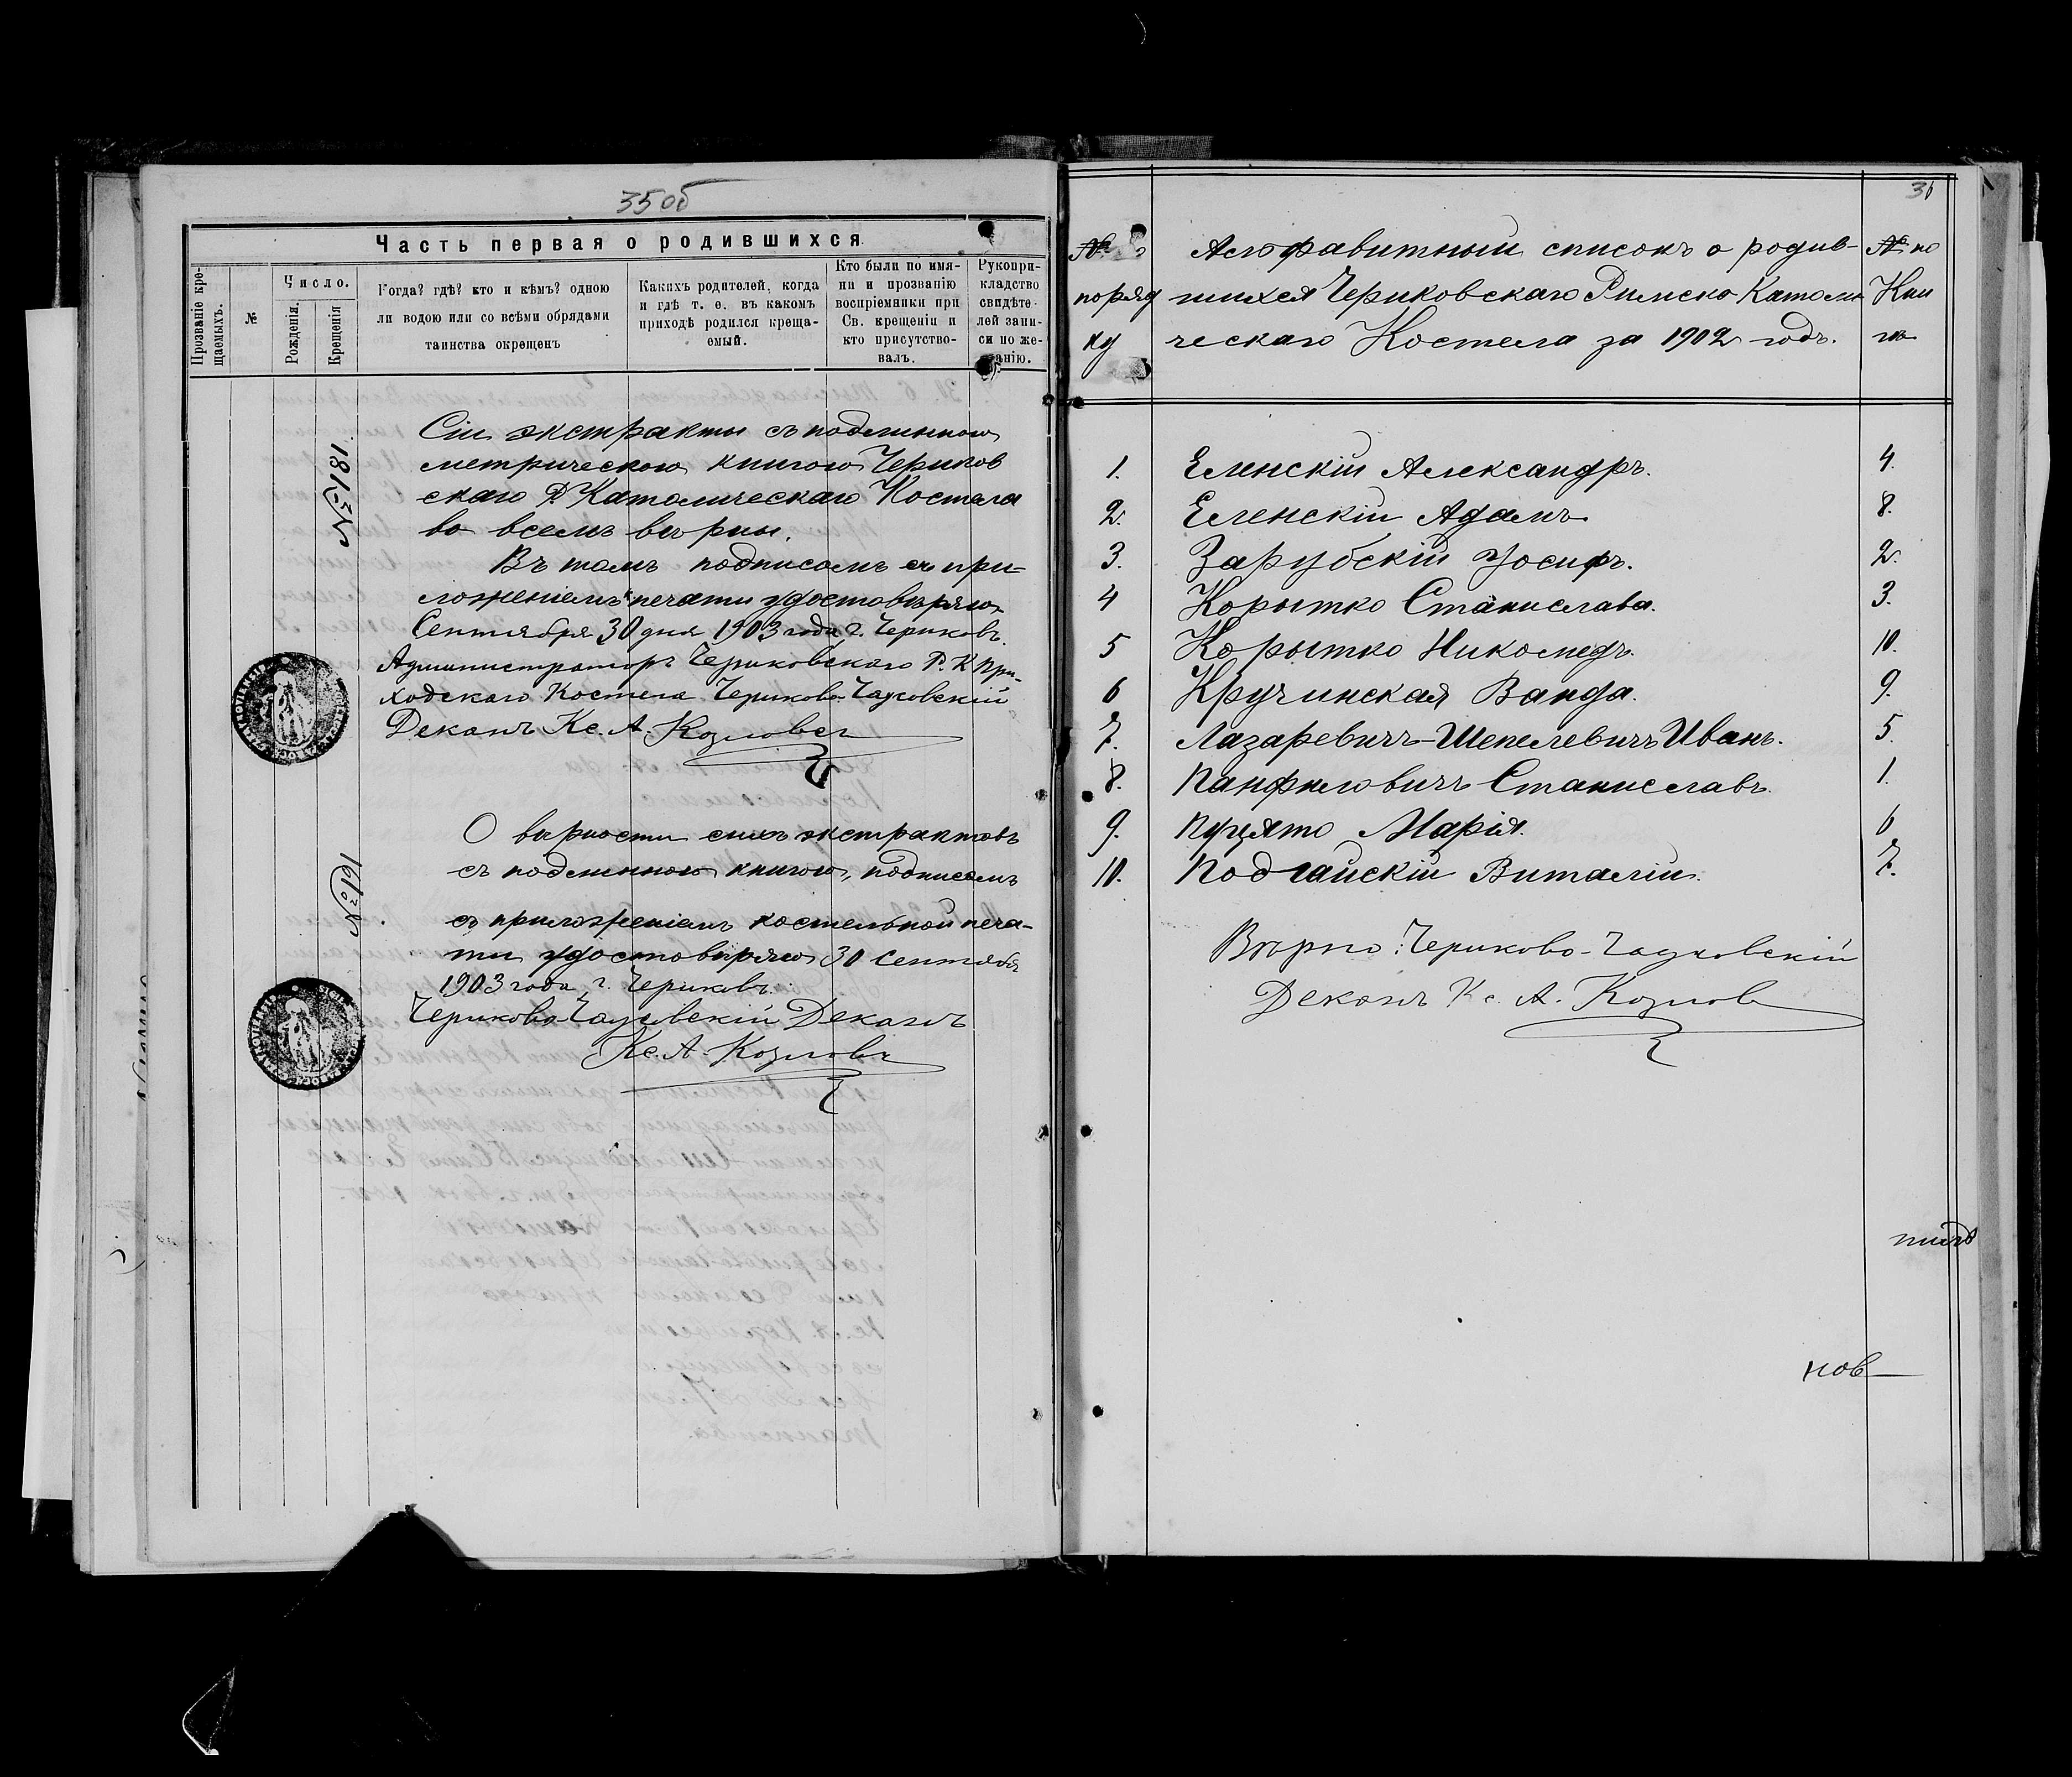 35 об
Часть первая о родившихся
Прозваніе кре-
щаемыхъ.
№
Число.
Рожденія.
Крещенія
Когда? гдѣ? кто и кѣмъ? одною
ли водою или со всѣми обрядами
таинства окрещенъ
Какихъ родителей, когда
и гдѣ т. е. въ какомъ
приходѣ родился креща-
емый.
Кто были по имя-
ни и прозванію
воспріемники при
Св. крещеніи и
кто присутство-
валъ.
Рукопри-
кладство
свидѣте-
лей запи-
си по же-
ланію.
№ 181
Сіи экстракты съ подлинною
метрическою книгою Чериков
скаго Р. Католическаго Костела
во всемъ вѣрны.
Въ томъ подписомъ съ при=
ложеніемъ печати удостовѣряю
Сентября 30 дня 1903 года, г. Чериковъ.
Администраторъ Чериковскаго Р. К При-
ходскаго Костела Чериково-Чаусовскій
Деканъ Кс. А. Козловск
№ 191
О вѣрности сихъ экстрактовъ
съ подлинною книгою, подписомъ
съ приложеніемъ костельной печа-
ти удостовѣряю 30 Сентября
1903 года, г. Чериковъ.
Чериково-Чаусовскій Деканъ
Кс. А. Козловск
36
№
поряд
ку
Алфавитный списокъ о родив-
шихся Чериковскаго Римско Католи
ческаго Костела за 1902 годъ.
№ по
Кни
гѣ
1. Еленскій Александръ. 4.
2. Еленскій Адамъ 8.
3. Зарубскій Іосифъ. 2.
4 Корытко Станислава. 3.
5 Корытко Никомедъ. 10.
6 Кручинская Ванда. 9.
7. Лазаревичъ-Шепелевичъ Иванъ. 5.
8. Панфиловичъ Станиславъ. 1.
9. Пуцято Марія. 6
10. Подгайскій Виталій. 7.
Вѣрно: Чериково-Чаусовскій
Деканъ Кс. А. Козлов
нов